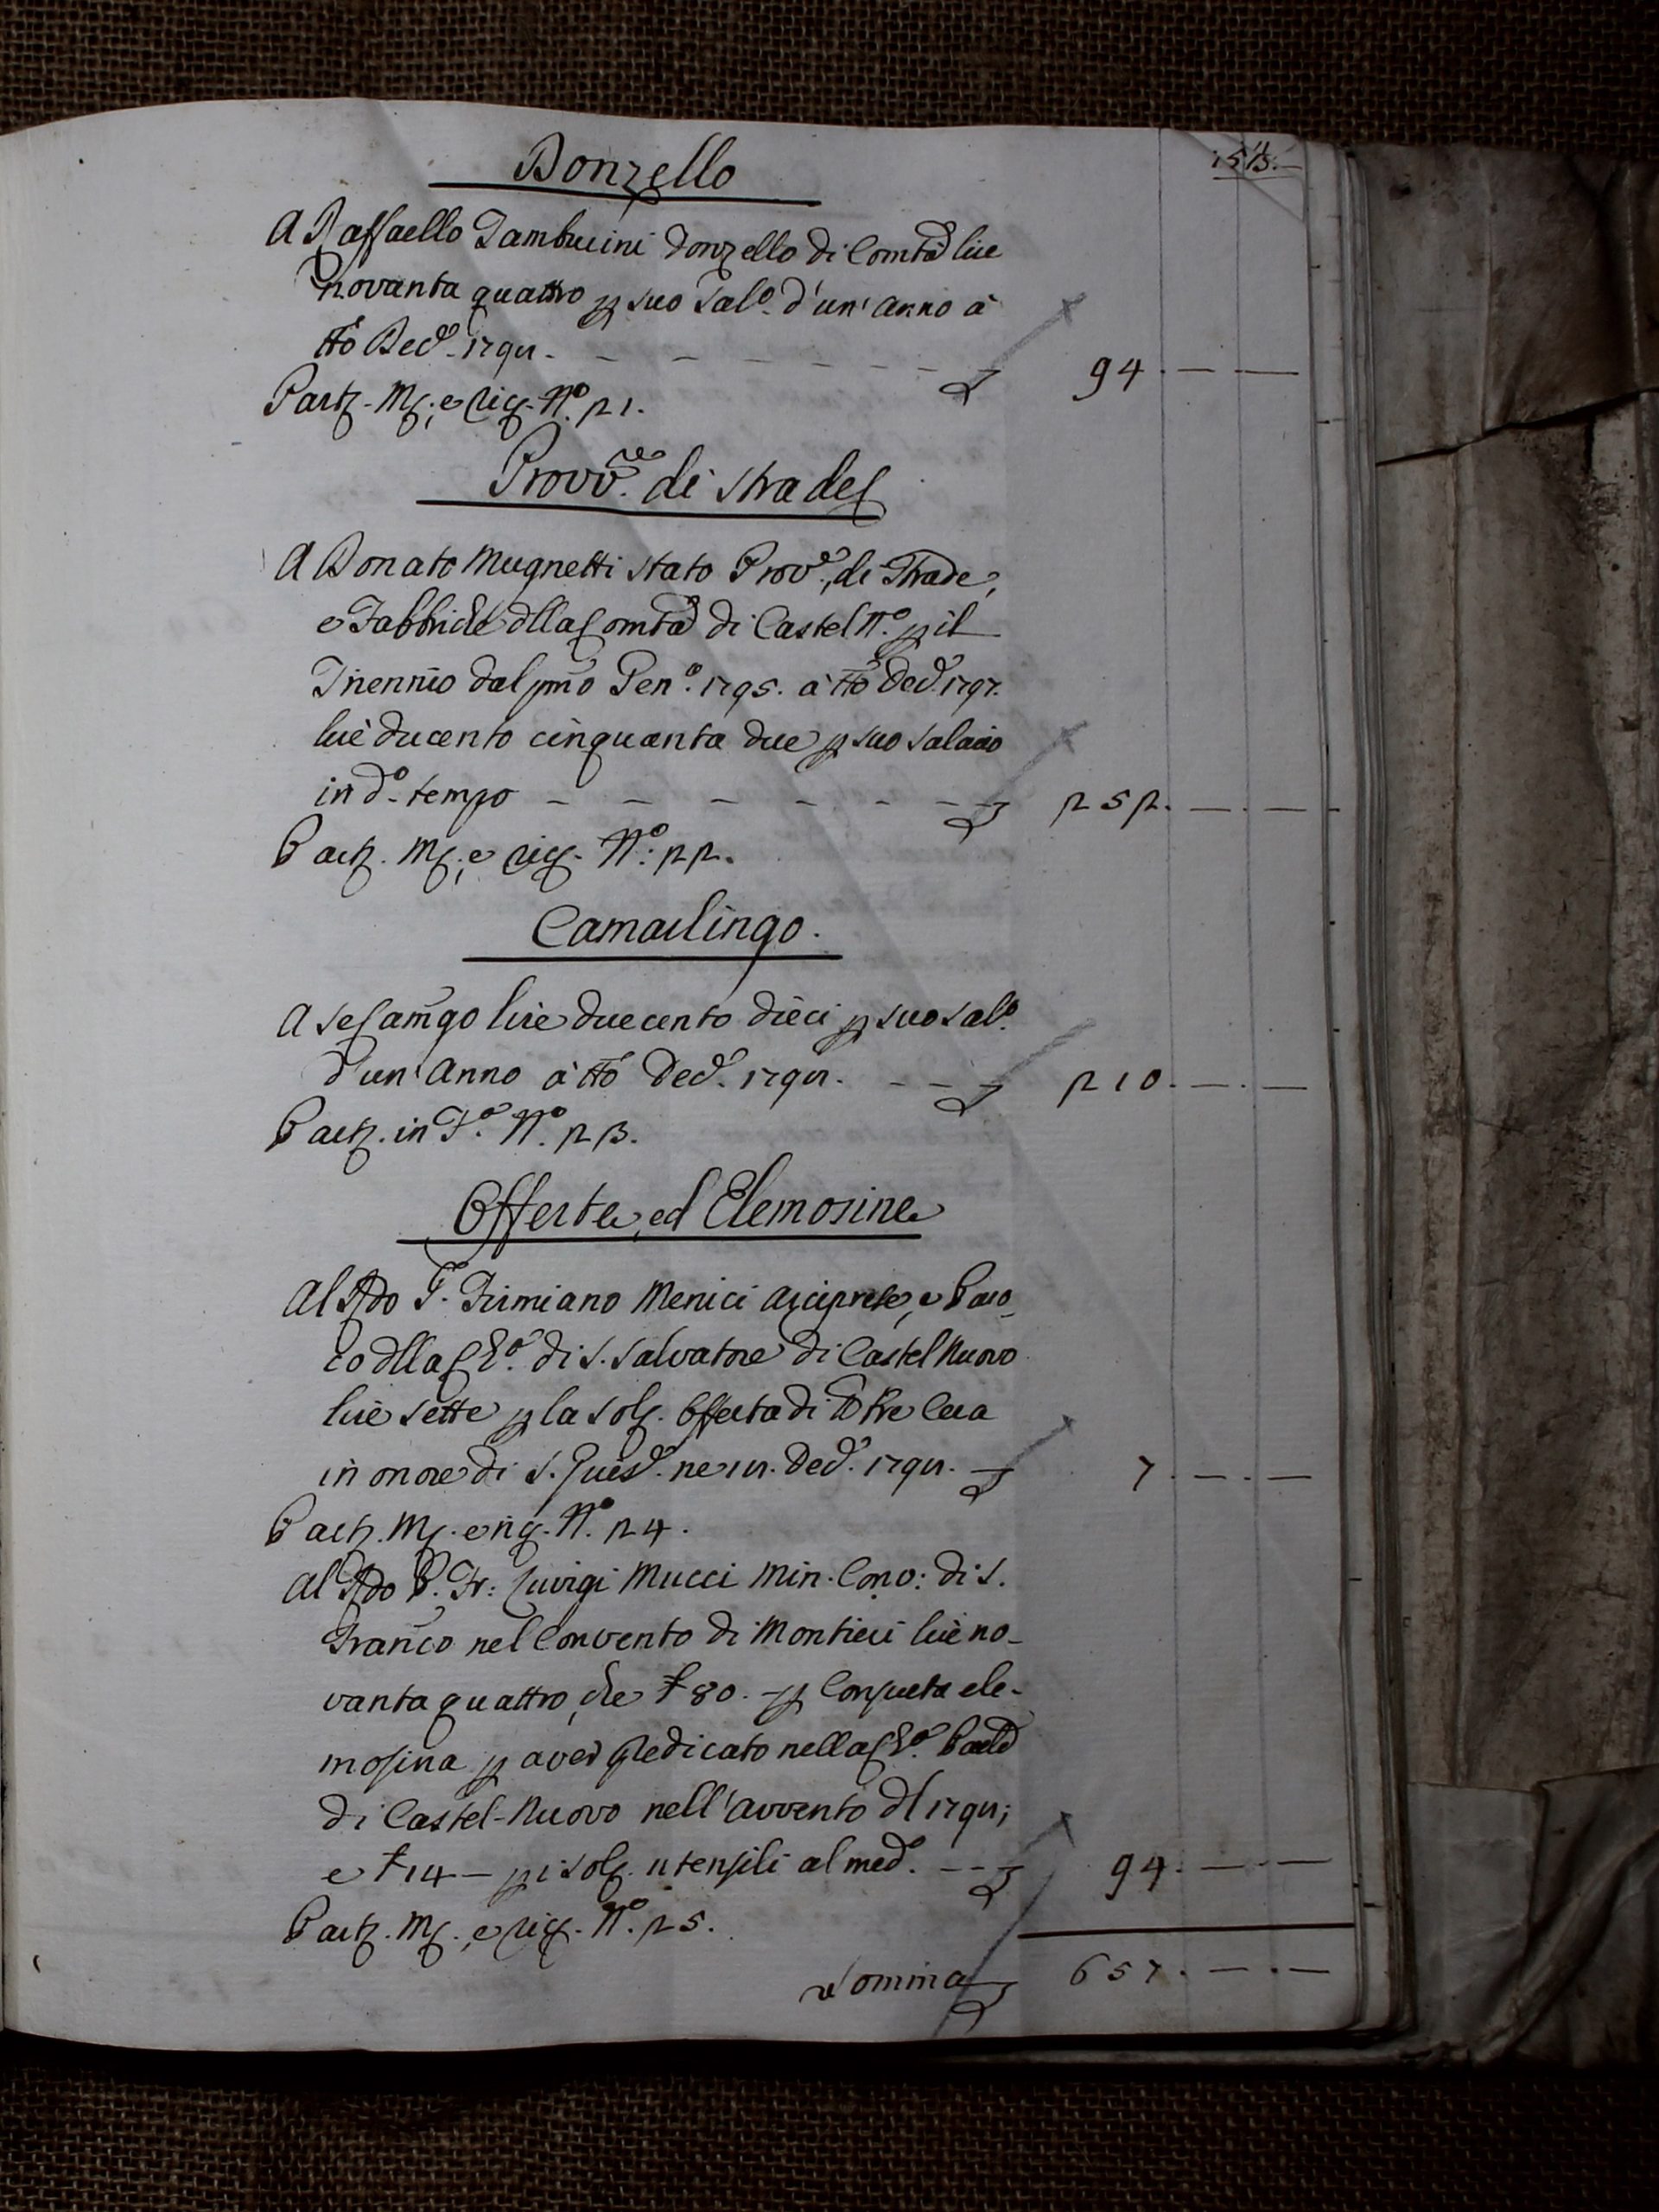 Donzello
A Raffaello Tamburini Donzello di Comtà lire
novanta quattro p suo Sal.º d'un' anno à
tto Dec.e 1797. 94. — —
Part. M.; e rig. N.º 21.
Provv.re di Strade
A Donato Mugnetti stato Provv.e, di Strade,
e Fabbriche dlla Comtà di Castel N.º p il
Triennio dal pmo Gen.º 1795. à tto Dec.e 1797.
lire ducento cinquanta due p suo salario
in d.º tempo 252. — . —
Part. M.; e rig. N.º: 22.
Camarlingo.
A se Camgo lire duecento dieci p suo sal.º
d'un' Anno à tto Dec.e 1797. 210. — . —
Part. in F.º N.º 23.
Offerte, ed Elemosine
Al Rdo Firmiano Menici Arciprete, e Paro
co dlla Ch.a di S. Salvatore di Castel Nuovo
lire sette p la sol. Offerta di tre Cera
in onore di S. ne Dec.e 1797. 7. — . —
Part. M. e rig. N.º 24.
Al Rdo P. Fr: Luvigi Mucci Min. Conv: di S.
Franco nel Convento di Montieri lire no-
vanta quattro, che £ 80. — p Consueta ele-
mosina p aver predicato nella Ch.a
di Castel-Nuovo nell' Avvento dl 1797;
e £ 14 — p i sol. utensili al med.º 94. — . —
Part. M., e rig. N.º 25.
Somma 657. — . —